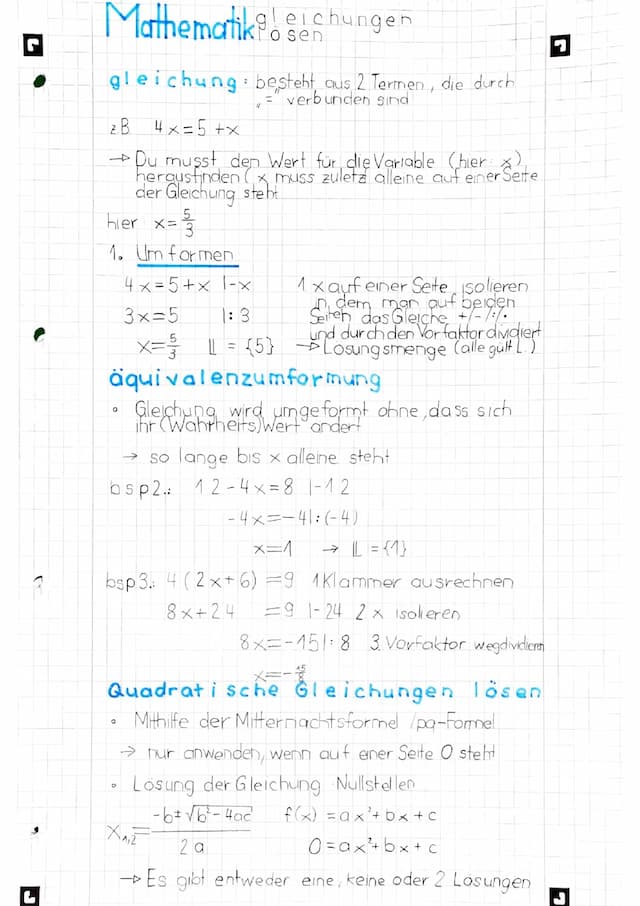 Mathematik gleichungen lösen
gleichung: besteht aus 2 Termen, die durch
"=" verbunden sind
zB 4x=5+x
→ Du musst den Wert für die Variable (hier x)
herausfinden (x muss zuletz alleine auf einer Seite
der Gleichung steht
hier x=5/3
1. Umformen
4x=5+x |-x 1 x auf einer Seite isolieren
in dem man auf beiden
3x=5 |:3 Seiten das Gleiche +/-/:/·
und durch den Vorfaktor dividiert
x=5/3 𝕃 = {5} → Lösungsmenge (alle gült L.)
äquivalenzumformung
° Gleichung wird umgeformt ohne, dass sich
ihr (Wahrheits)Wert ändert
→ so lange bis x alleine steht
bsp2.: 12-4x=8 |-12
-4x=-4|:(-4)
x=1 → 𝕃 = {1}
bsp3.: 4(2x+6)=9 1 Klammer ausrechnen
8x+24 =9 |-24 2 x isolieren
8x=-15|:8 3. Vorfaktor wegdividieren
x=-15/8
Quadratische Gleichungen lösen
° Mithilfe der Mitternachtsformel /pq-Formel
→ nur anwenden, wenn auf einer Seite 0 steht
° Lösung der Gleichung Nullstellen
x₁,₂=(-b±√(b²-4ac))/2a f(x) =ax²+bx+c
0=ax²+bx+c
→ Es gibt entweder eine, keine oder 2 Lösungen